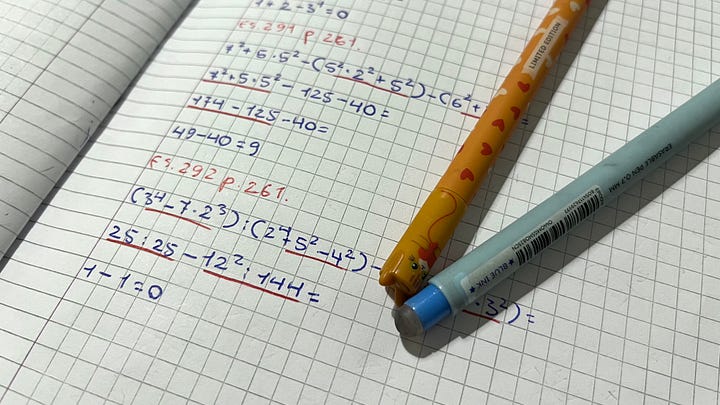 1+2-3⁴=0
Es.291 p 261.
7²+5·5²-(5²·2²+5²)-(6²+
=
7²+5·5²-125-40=
174-125-40=
49-40=9
Es.292 p 261.
(3⁴-7·2³):(2⁴+5²-4²)-
·3²)=
25:25-12²:144=
1-1=0
LIMITED EDITION
ERASABLE PEN 0.7 MM
BLUE INK